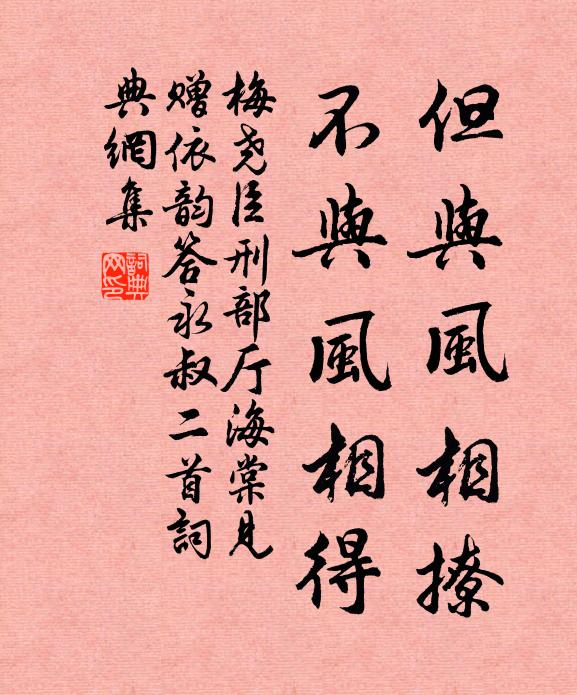 但與風相撩
不與風相得
梅尧臣刑部厅海棠見
赠依韵答永叔二首詞
典網集
詞典
网印